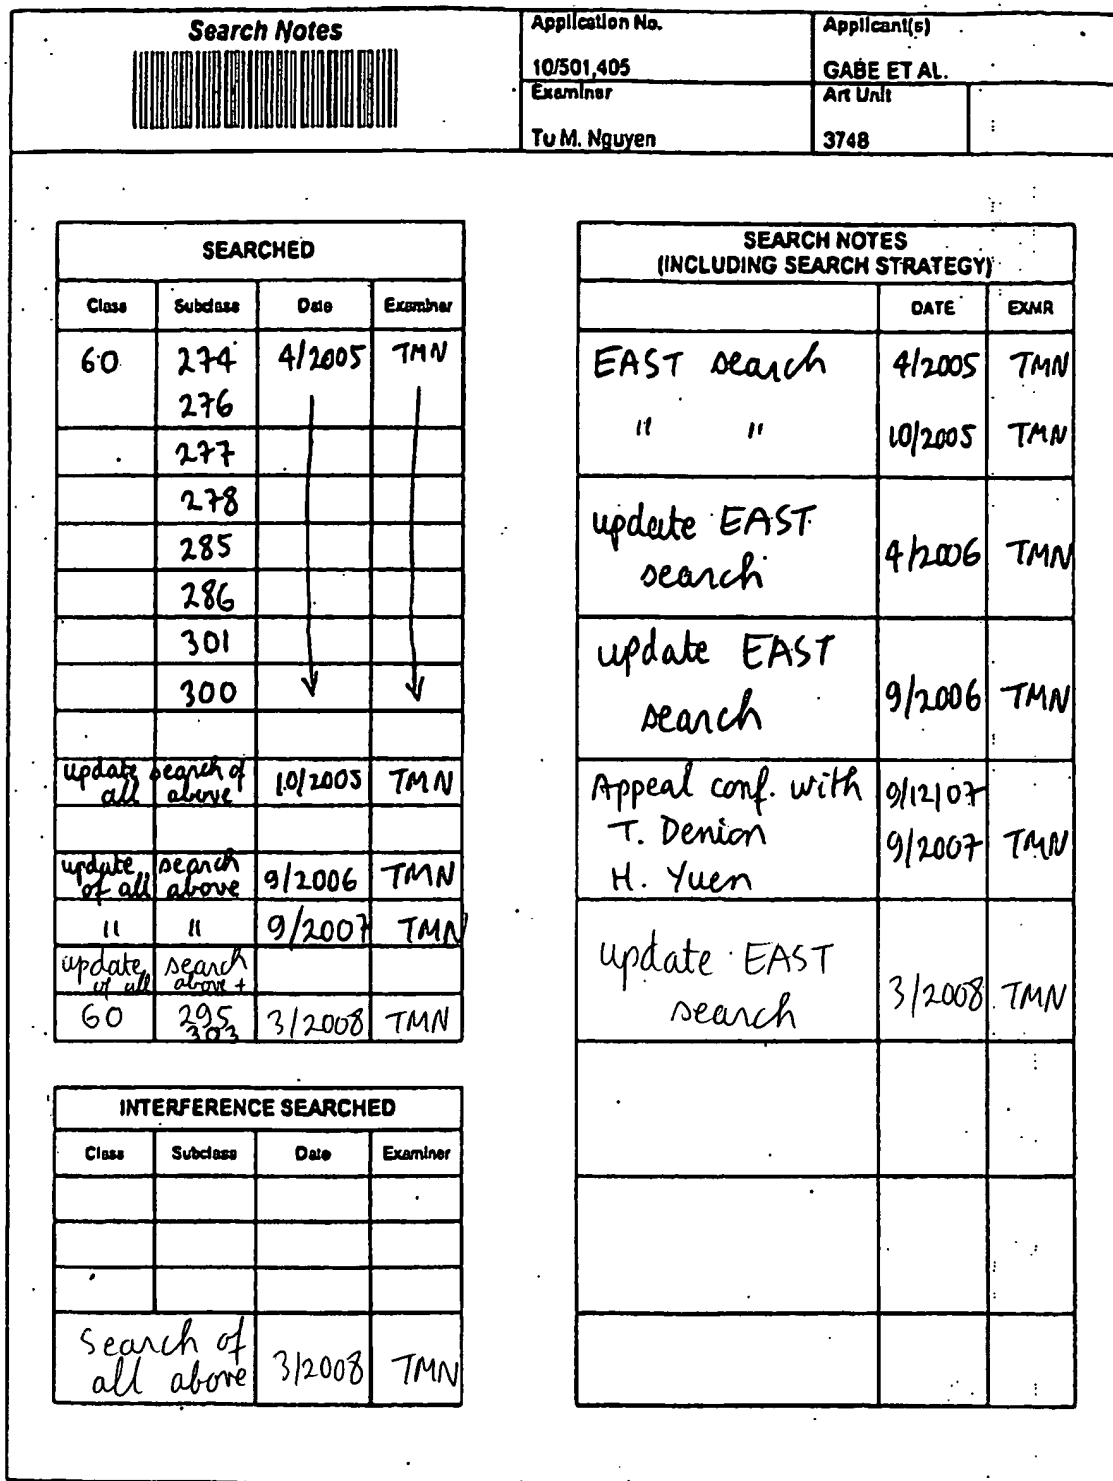 Search Notes
Application No.
10/501,405
Applicant(s)
GABE ET AL.
Examiner
Tu M. Nguyen
Art Unit
3748
SEARCHED
Class Subclass Date Examiner
60 274 4/2005 TMN
276
277
278
285
286
301
300
update search of
all above 10/2005 TMN
update search
of all above 9/2006 TMN
" " 9/2007 TMN
update search
of all above +
60 295 3/2008 TMN
303
INTERFERENCE SEARCHED
Class Subclass Date Examiner
Search of
all above 3/2008 TMN
SEARCH NOTES
(INCLUDING SEARCH STRATEGY)
DATE EXMR
EAST search 4/2005 TMN
" " 10/2005 TMN
update EAST
search 4/2006 TMN
update EAST
search 9/2006 TMN
Appeal conf. with 9/12/07
T. Denion 9/2007 TMN
H. Yuen
update EAST
search 3/2008 TMN